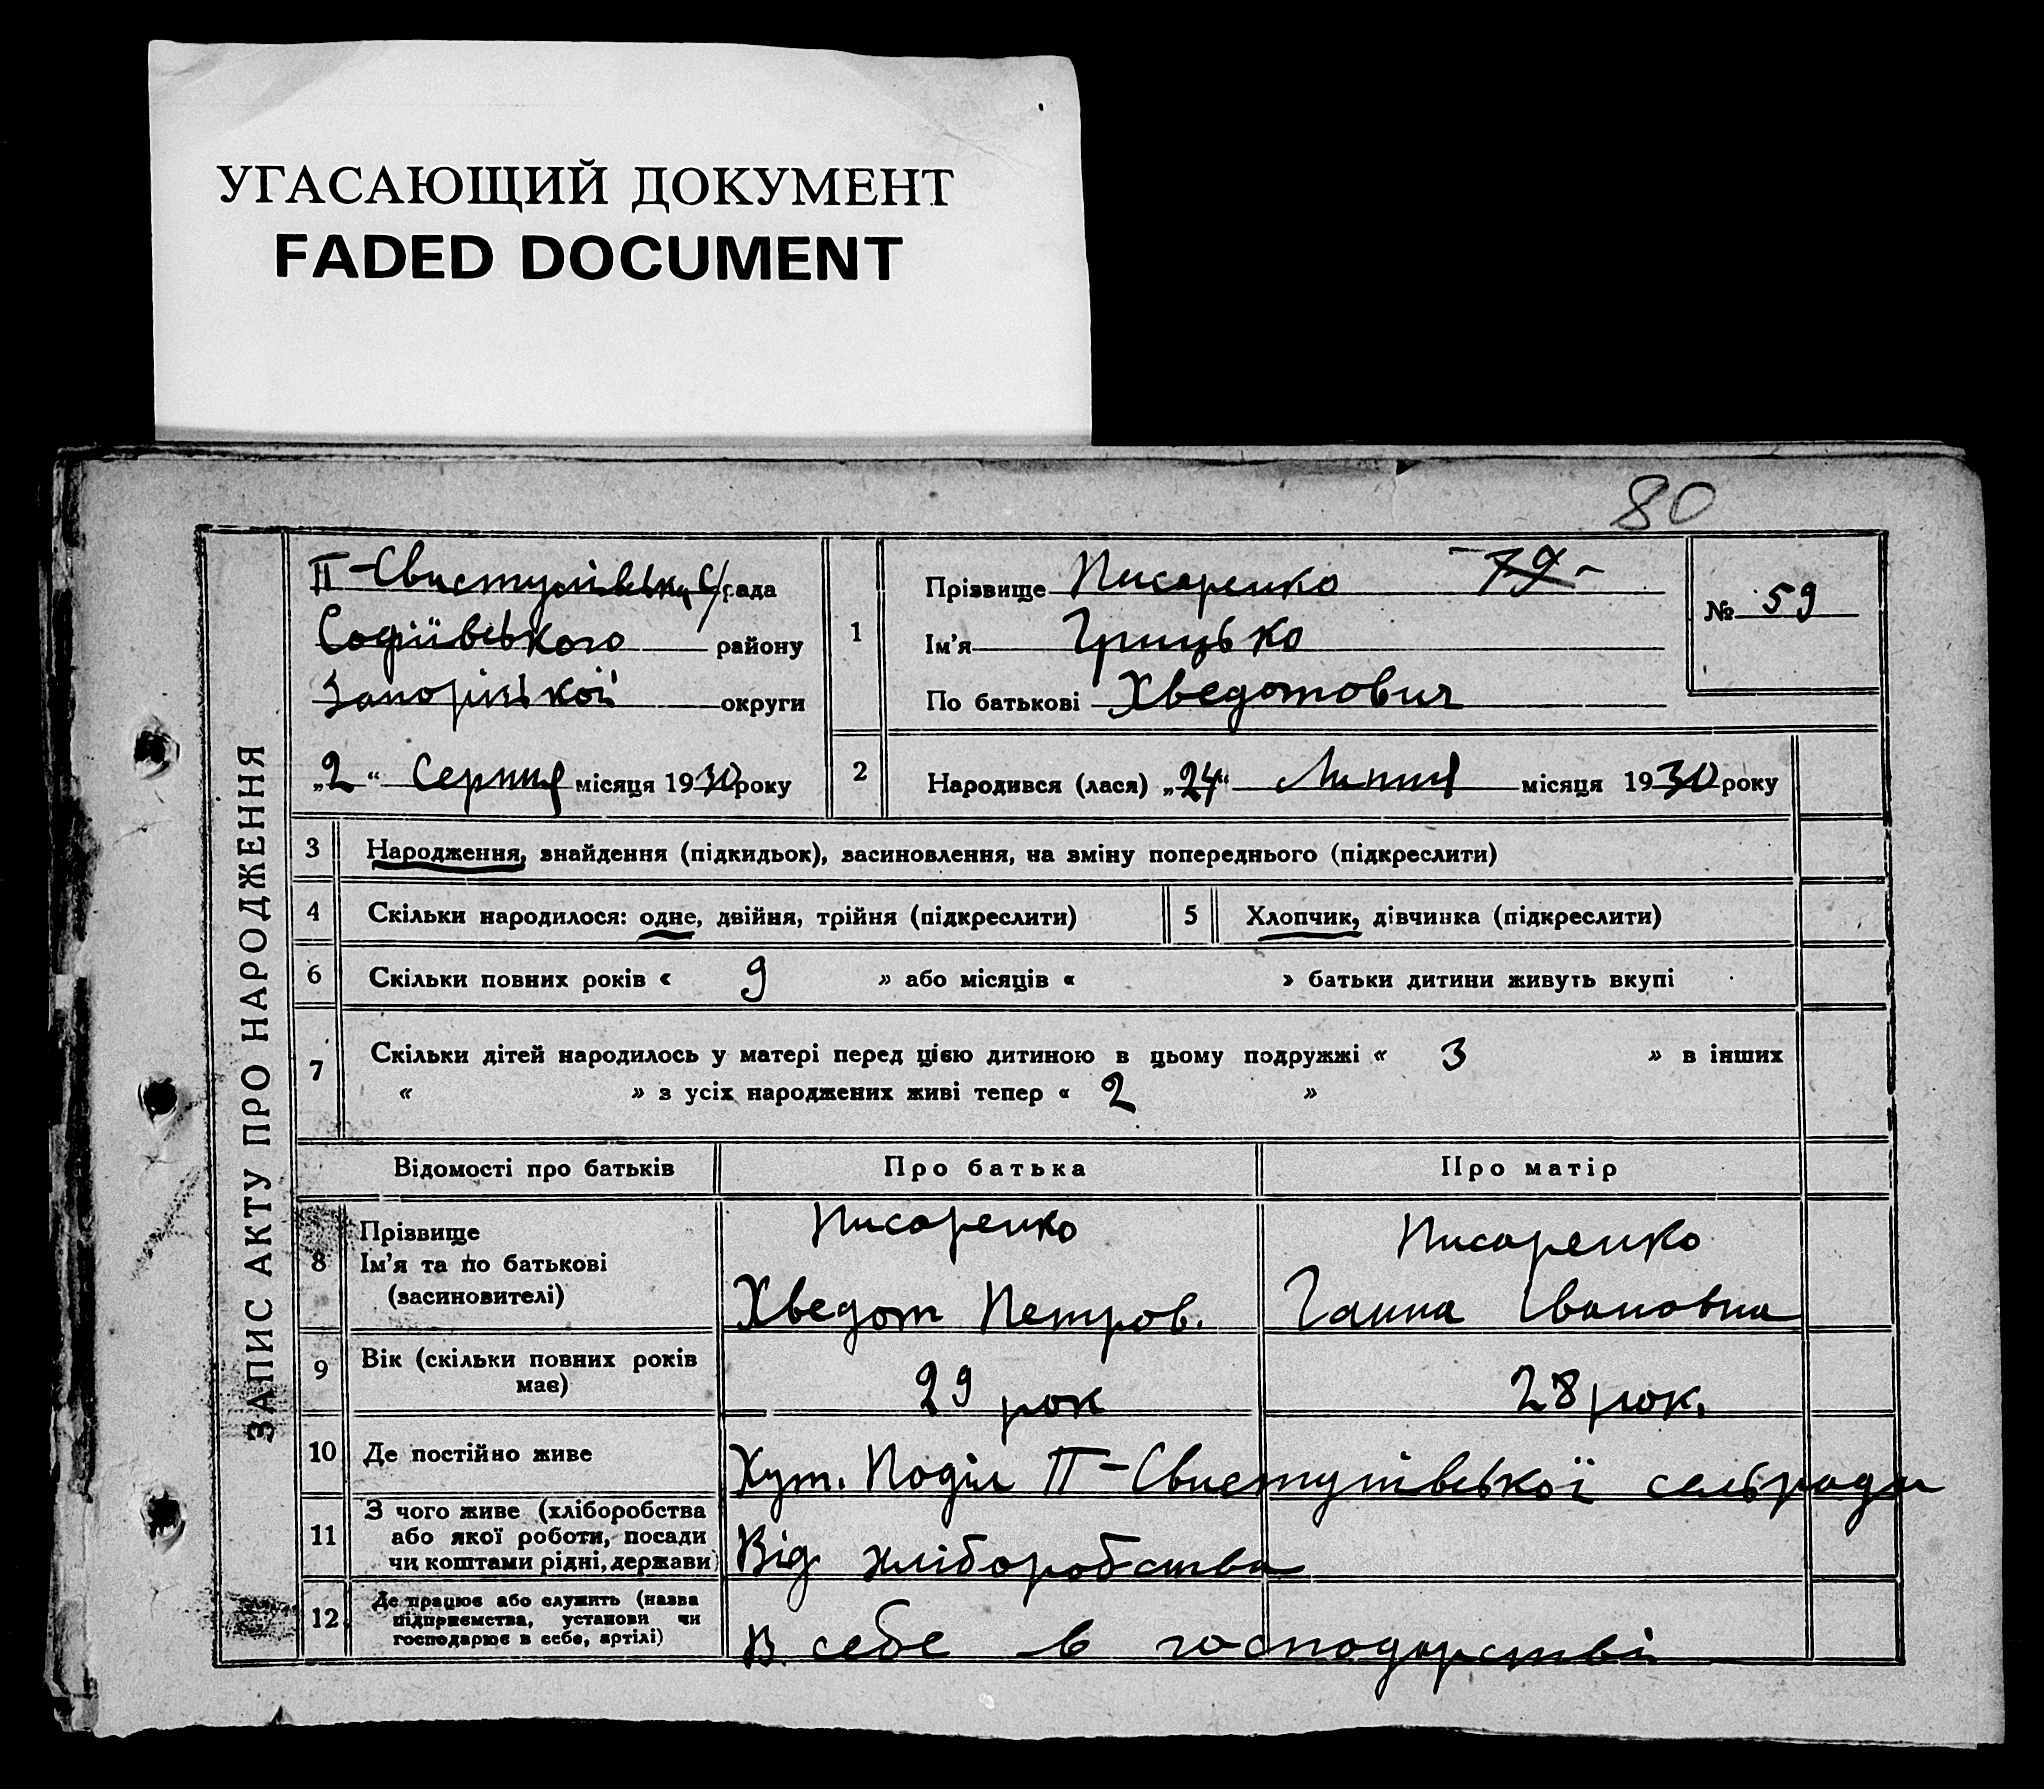 УГАСАЮЩИЙ ДОКУМЕНТ
FADED DOCUMENT
80
ЗАПИС АКТУ ПРО НАРОДЖЕННЯ
ІІ-Свистунівська с/рада
Софіївського району
Запорізької округи
„2“ Серпня місяця 1930 року
1
Прізвище Писаренко
79
Ім'я Грицько
По батькові Хведотович
№ 59
2
Народився (лася) „24“ Липня місяця 1930 року
3 Народження, знайдення (підкидьок), засиновлення, на зміну попереднього (підкреслити)
4 Скільки народилося: одне, двійня, трійня (підкреслити) 5 Хлопчик, дівчинка (підкреслити)
6 Скільки повних років « 9 » або місяців « » батьки дитини живуть вкупі
7 Скільки дітей народилось у матері перед цією дитиною в цьому подружжі « 3 » в інших
« » з усіх народжених живі тепер « 2 »
Відомості про батьків Про батька Про матір
8 Прізвище
Ім'я та по батькові
(засиновителі)
Писаренко
Хведот Петров.
Писаренко
Ганна Івановна
9 Вік (скільки повних років
має)
29 рок
28 рок.
10 Де постійно живе Хут. Поділ ІІ-Свистунівської сельради
11 З чого живе (хліборобства
або якої роботи, посади
чи коштами рідні, держави)
Від хліборобства
12 Де працює або служить (назва
підприємства, установи чи
господарює в себе, артілі)
В себе в господарстві